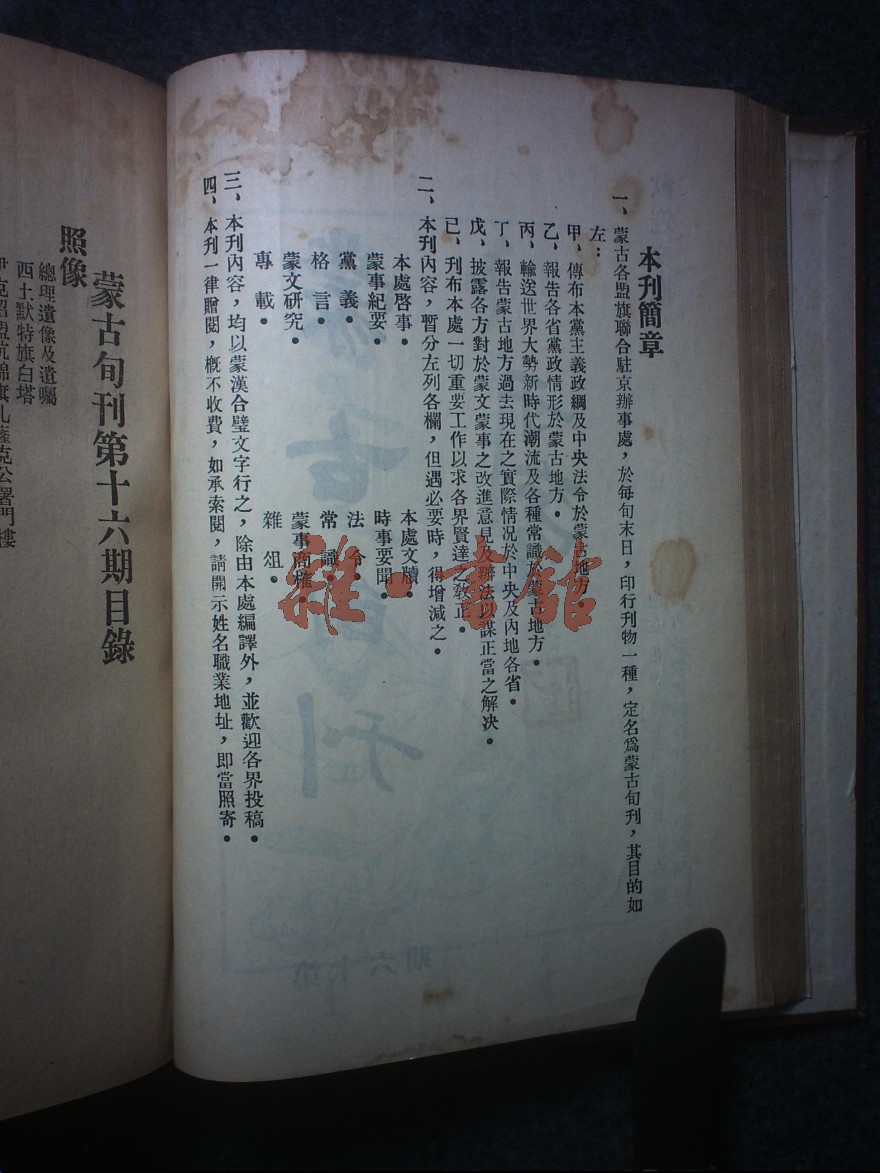 本刊簡章
一、蒙古各盟旗聯合駐京辦事處，於每旬末日，印行刊物一種，定名爲蒙古旬刊，其目的如
左：
甲、傳布本黨主義政綱及中央法令於蒙古地方．
乙、報告各省黨政情形於蒙古地方．
丙、輸送世界大勢新時代潮流及各種常識於蒙古地方．
丁、報告蒙古地方過去現在之實際情況於中央及內地各省．
戊、披露各方對於蒙文蒙事之改進意見及辦法以謀正當之解决．
已、刊布本處一切重要工作以求各界賢達之敎正．
二、本刊內容，暫分左列各欄，但遇必要時，得增減之．
本處啓事．
本處文牘．
蒙事紀要．
時事要聞．
黨義．
法令．
格言．
常識．
蒙文研究．
蒙事商榷．
專載．
雜俎．
三、本刊內容，均以蒙漢合璧文字行之，除由本處編譯外，並歡迎各界投稿．
四、本刊一律贈閱，概不收費，如承索閱，請開示姓名職業地址，即當照寄．
蒙古旬刊第十六期目錄
照像
總理遺像及遺囑
西土默特旗白塔
伊克昭盟杭錦旗札薩克公署門樓
雜·書館
蒙古旬刊
第十六期